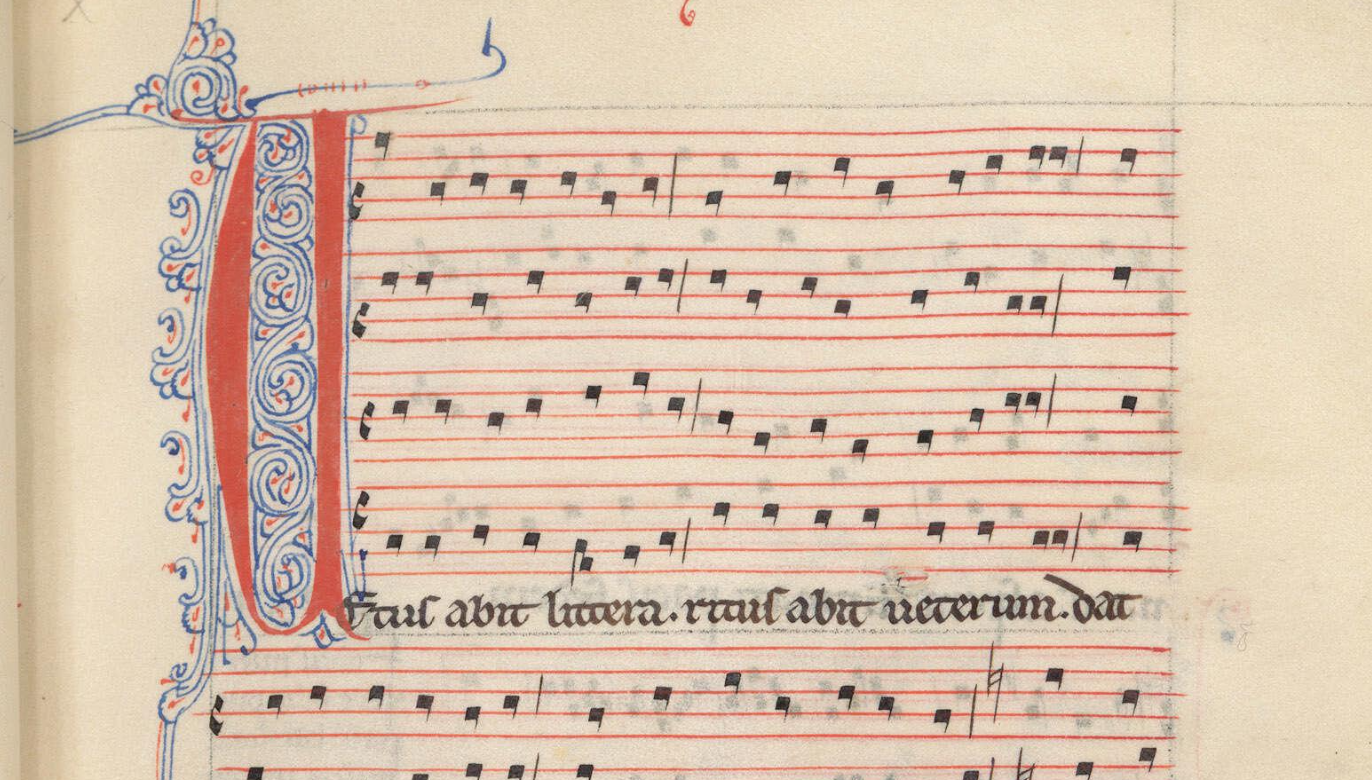 Vetus abit littera. ritus abit veterum. dat